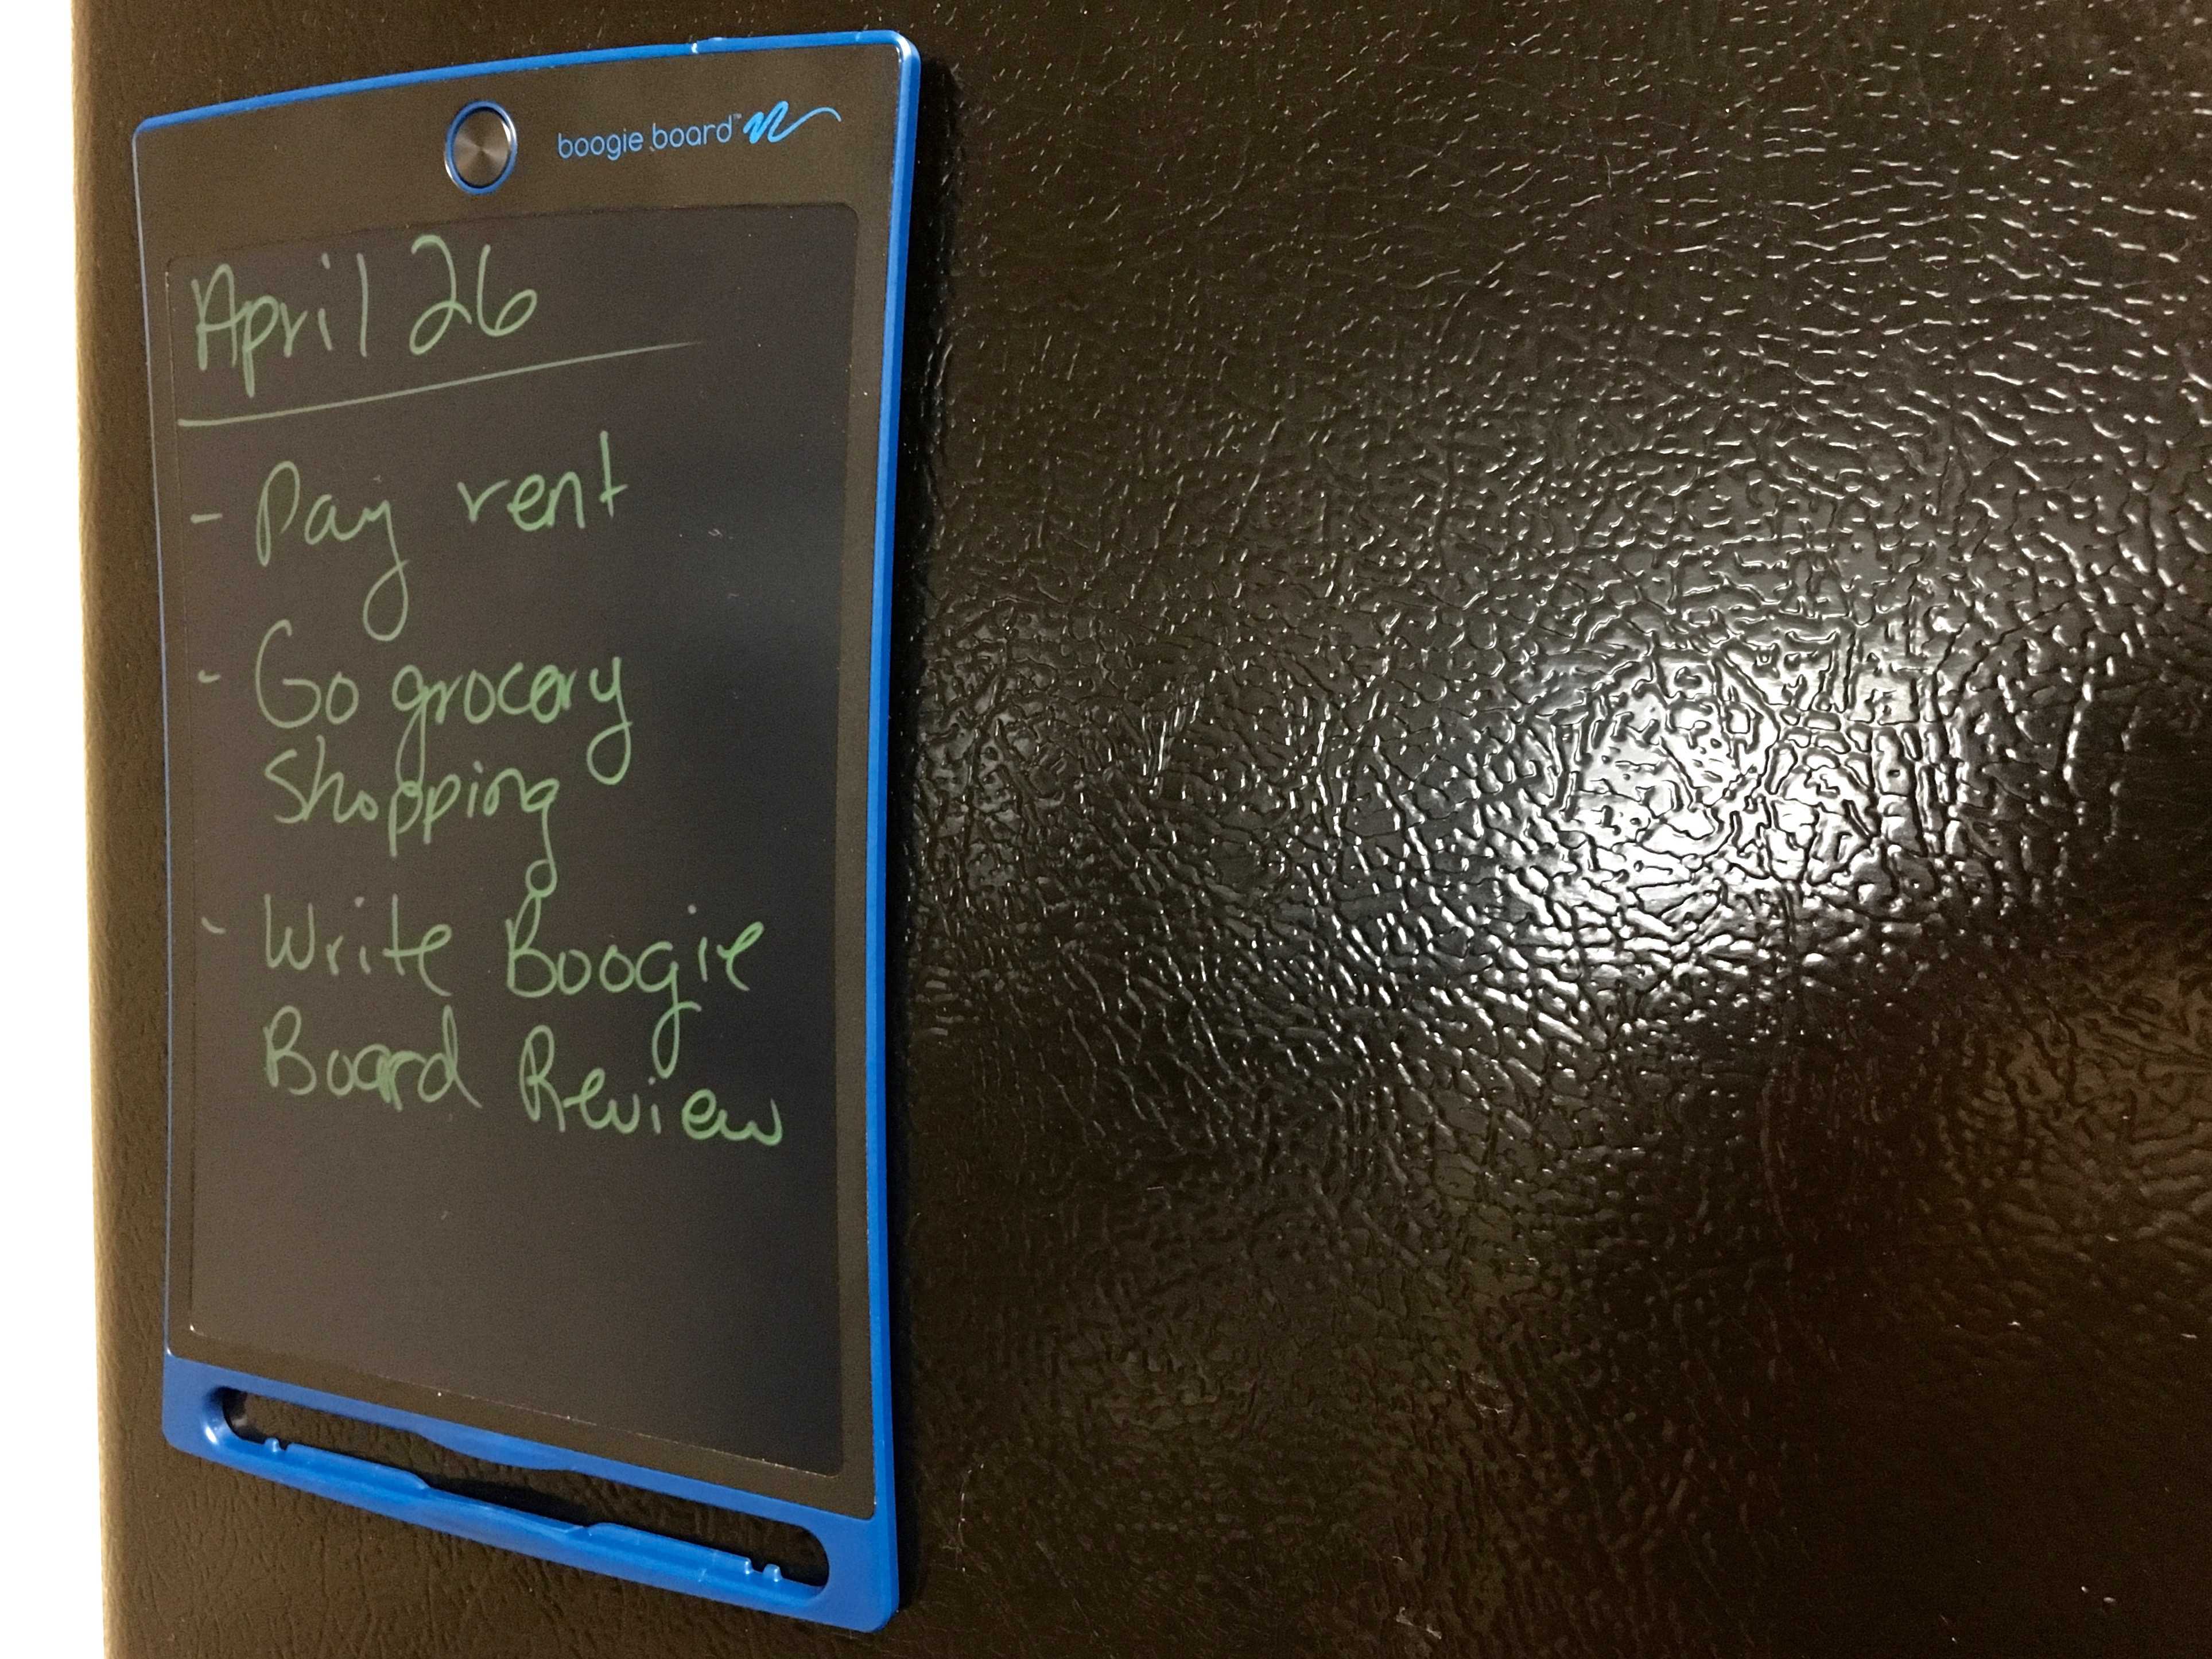 boogie board™
April 26
- Pay rent
- Go grocery
shopping
- Write Boogie
Board Review